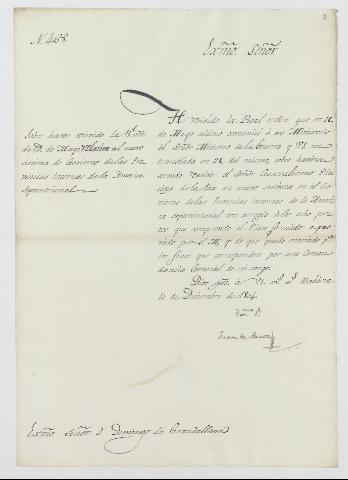 N. 468.
Exmo. Señor
Sobre haver recivido la Rl. orn.
de Mayo al nuevo
sistema de Govierno de las Pro-
vincias Internas de la America
Septentrional
He recivido la Real orden que en
de Mayo ultimo comunicó á ese Ministerio
el Señor Ministro de la Guerra y V.E. me
translada en 28 del mismo, sobre haverse
servido resolver el Señor Generalisimo Prin-
cipe de la Paz un nuevo sistema en el Go-
vierno de las Provincias internas de la Ameri-
ca Septentrional con arreglo á los ocho pun-
tos que comprende el Plan formado y apro-
vado por S.M., y de que quedo enterado pa.
los fines que corresponden por esta Coman-
dancia General de mi cargo.
Dios gde. á V.E. ms. as. Habana
de Diciembre de 1804.
Exmo. Sr.
Juan de
Exmo. Señor D. Domingo de Grandallana